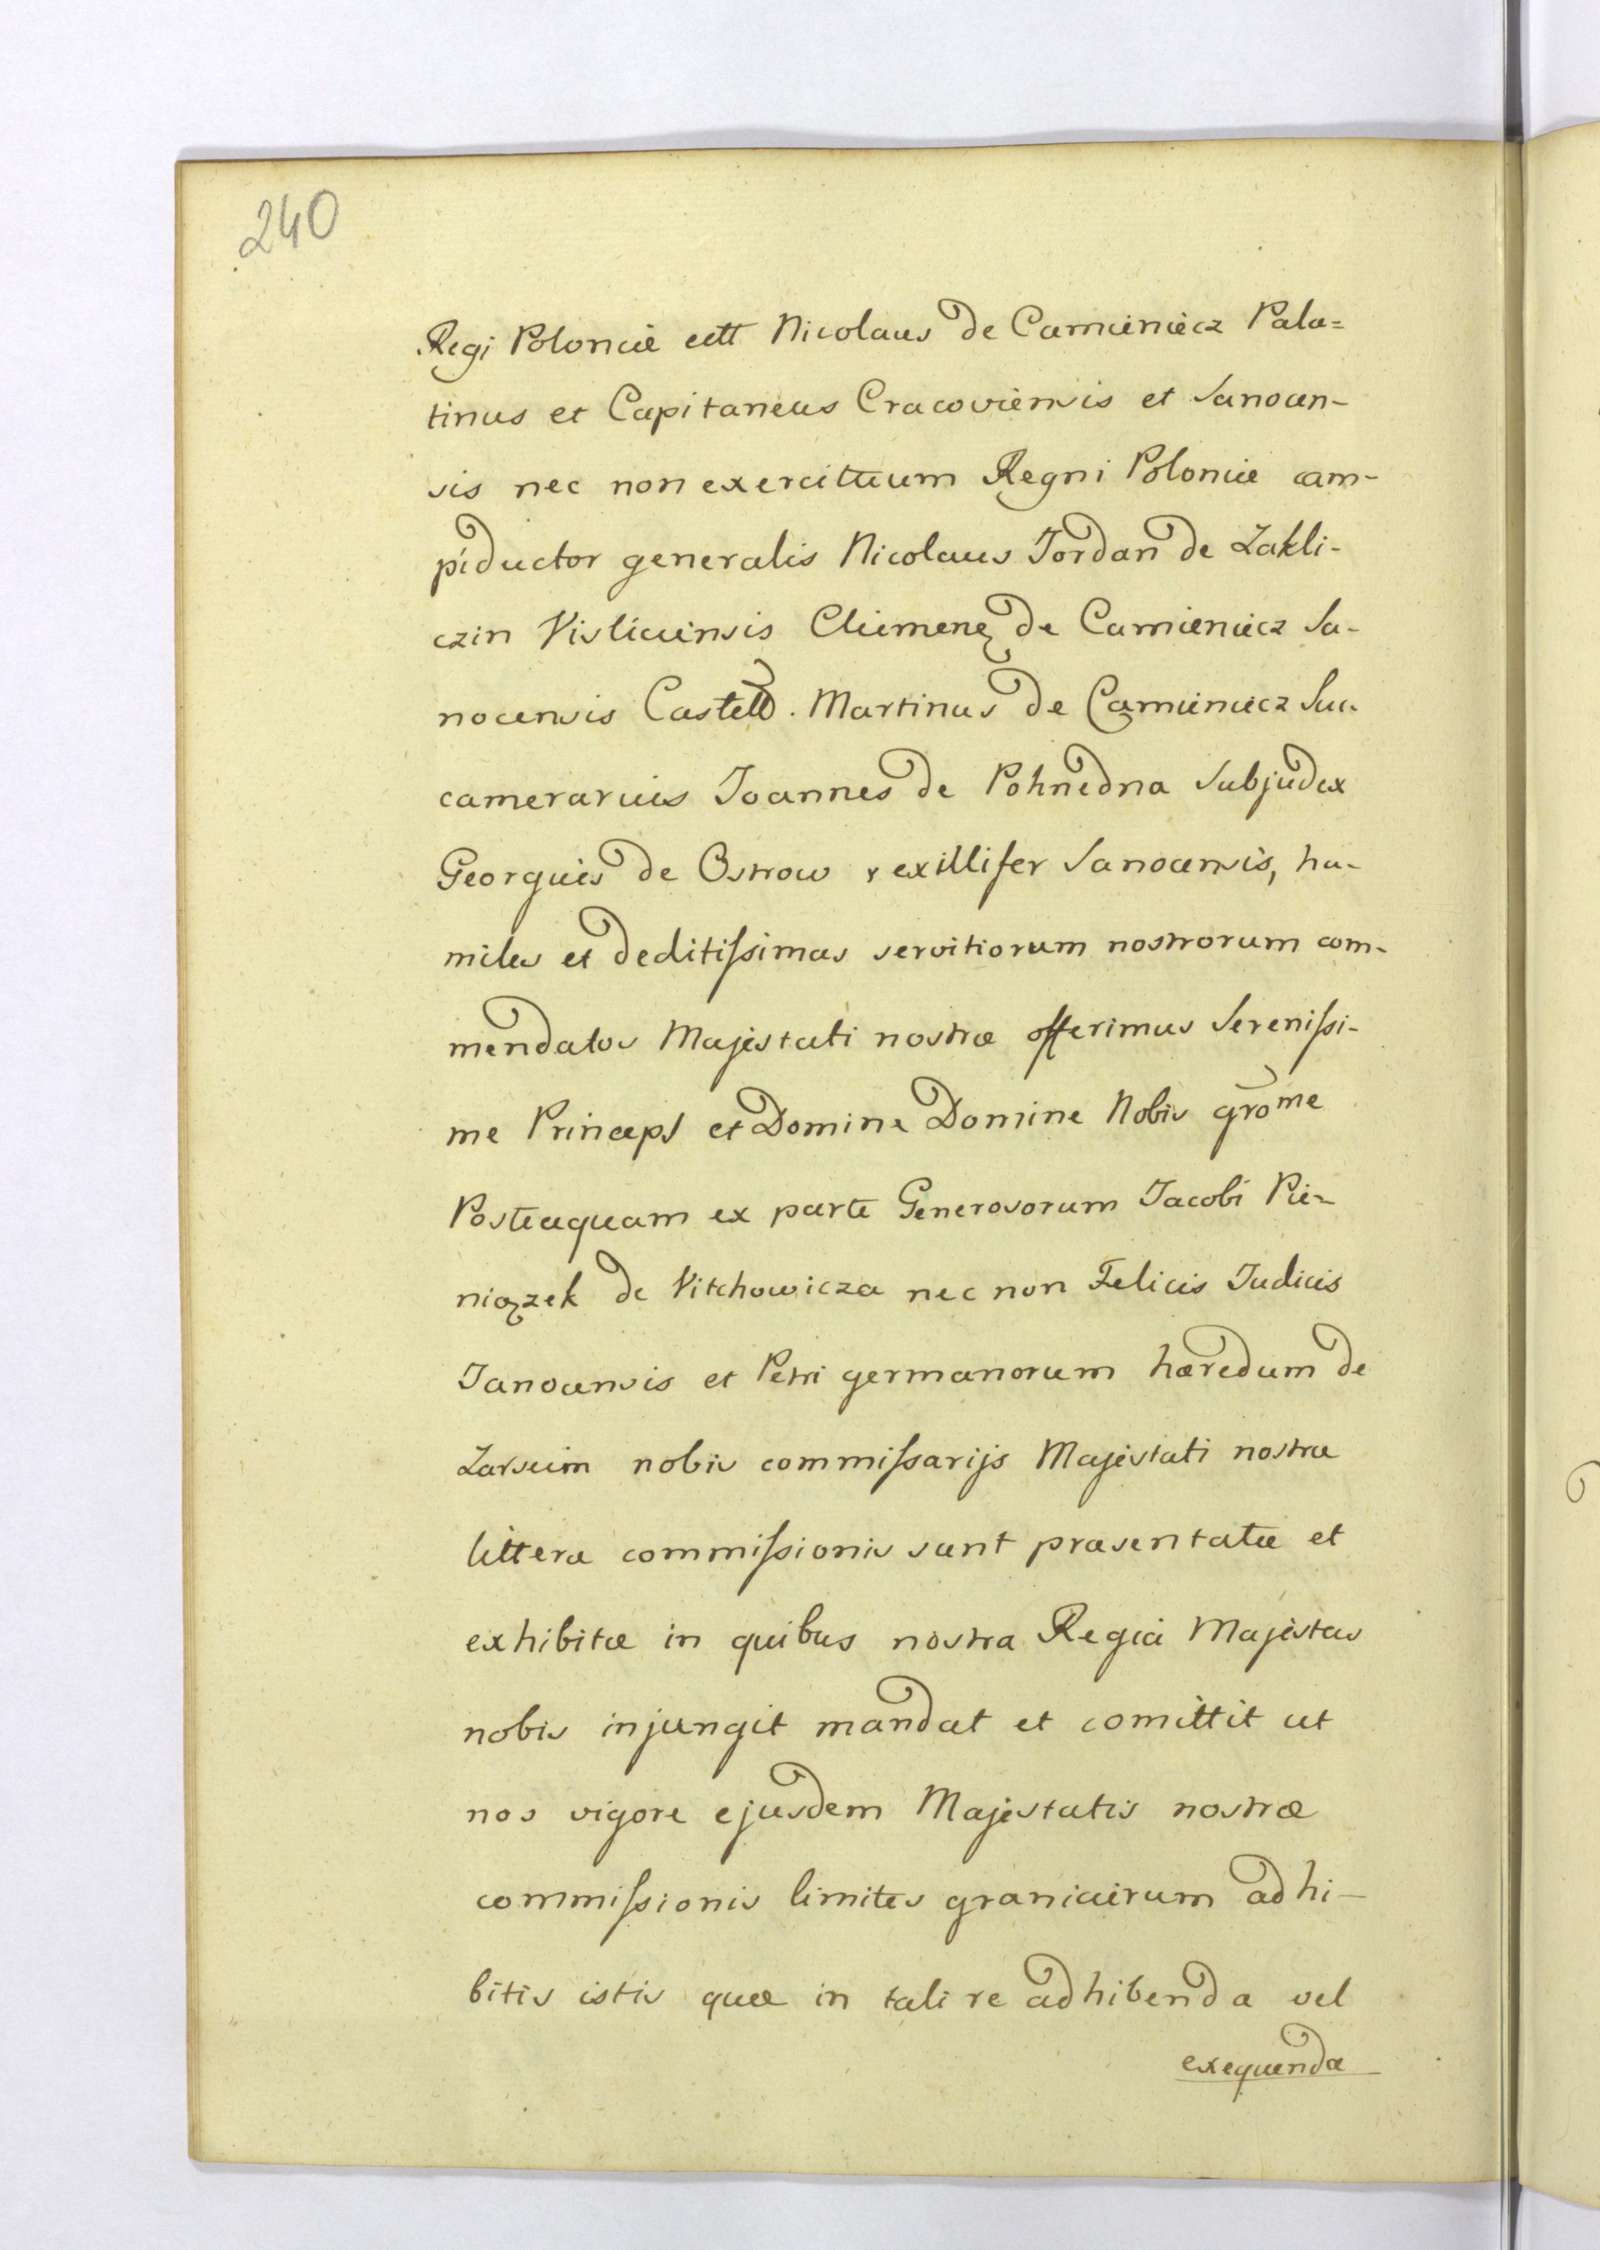 240
Regi Poloniæ ett Nicolaus de Camieniecz Pala=
tinus et Capitaneus Cracoviensis et Sanocen-
sis nec non exercituum Regni Poloniæ cam-
piductor generalis Nicolaus Jordan de Zakli-
czin Visliciensis Clemenę de Camieniecz Sa-
nocensis Castell. Martinus de Camieniecz Suc-
camerarius Joannes de Pohnedna Subjudex
Georgius de Ostrow vexillifer Sanocensis, hu-
miles et deditissimas servitiorum nostrorum com-
mendatos Majestati nostræ offerimus Serenissi-
me Princeps et Domine Domine Nobis grome
Posteaquam ex parte Generosorum Jacobi Pie-
niązek de Vitchowicza nec non Felicis Judicis
Sanocensis et Petri germanorum hæredum de
Zarszim nobis commissarijs Majestati nostræ
litteræ commissionis sunt præsentatæ et
exhibitæ in quibus nostra Regia Majestas
nobis injungit mandat et comittit ut
nos vigore ejusdem Majestatis nostræ
commissionis limites granicierum adhi-
bitis istis quæ in tali re adhibenda vel
exequenda